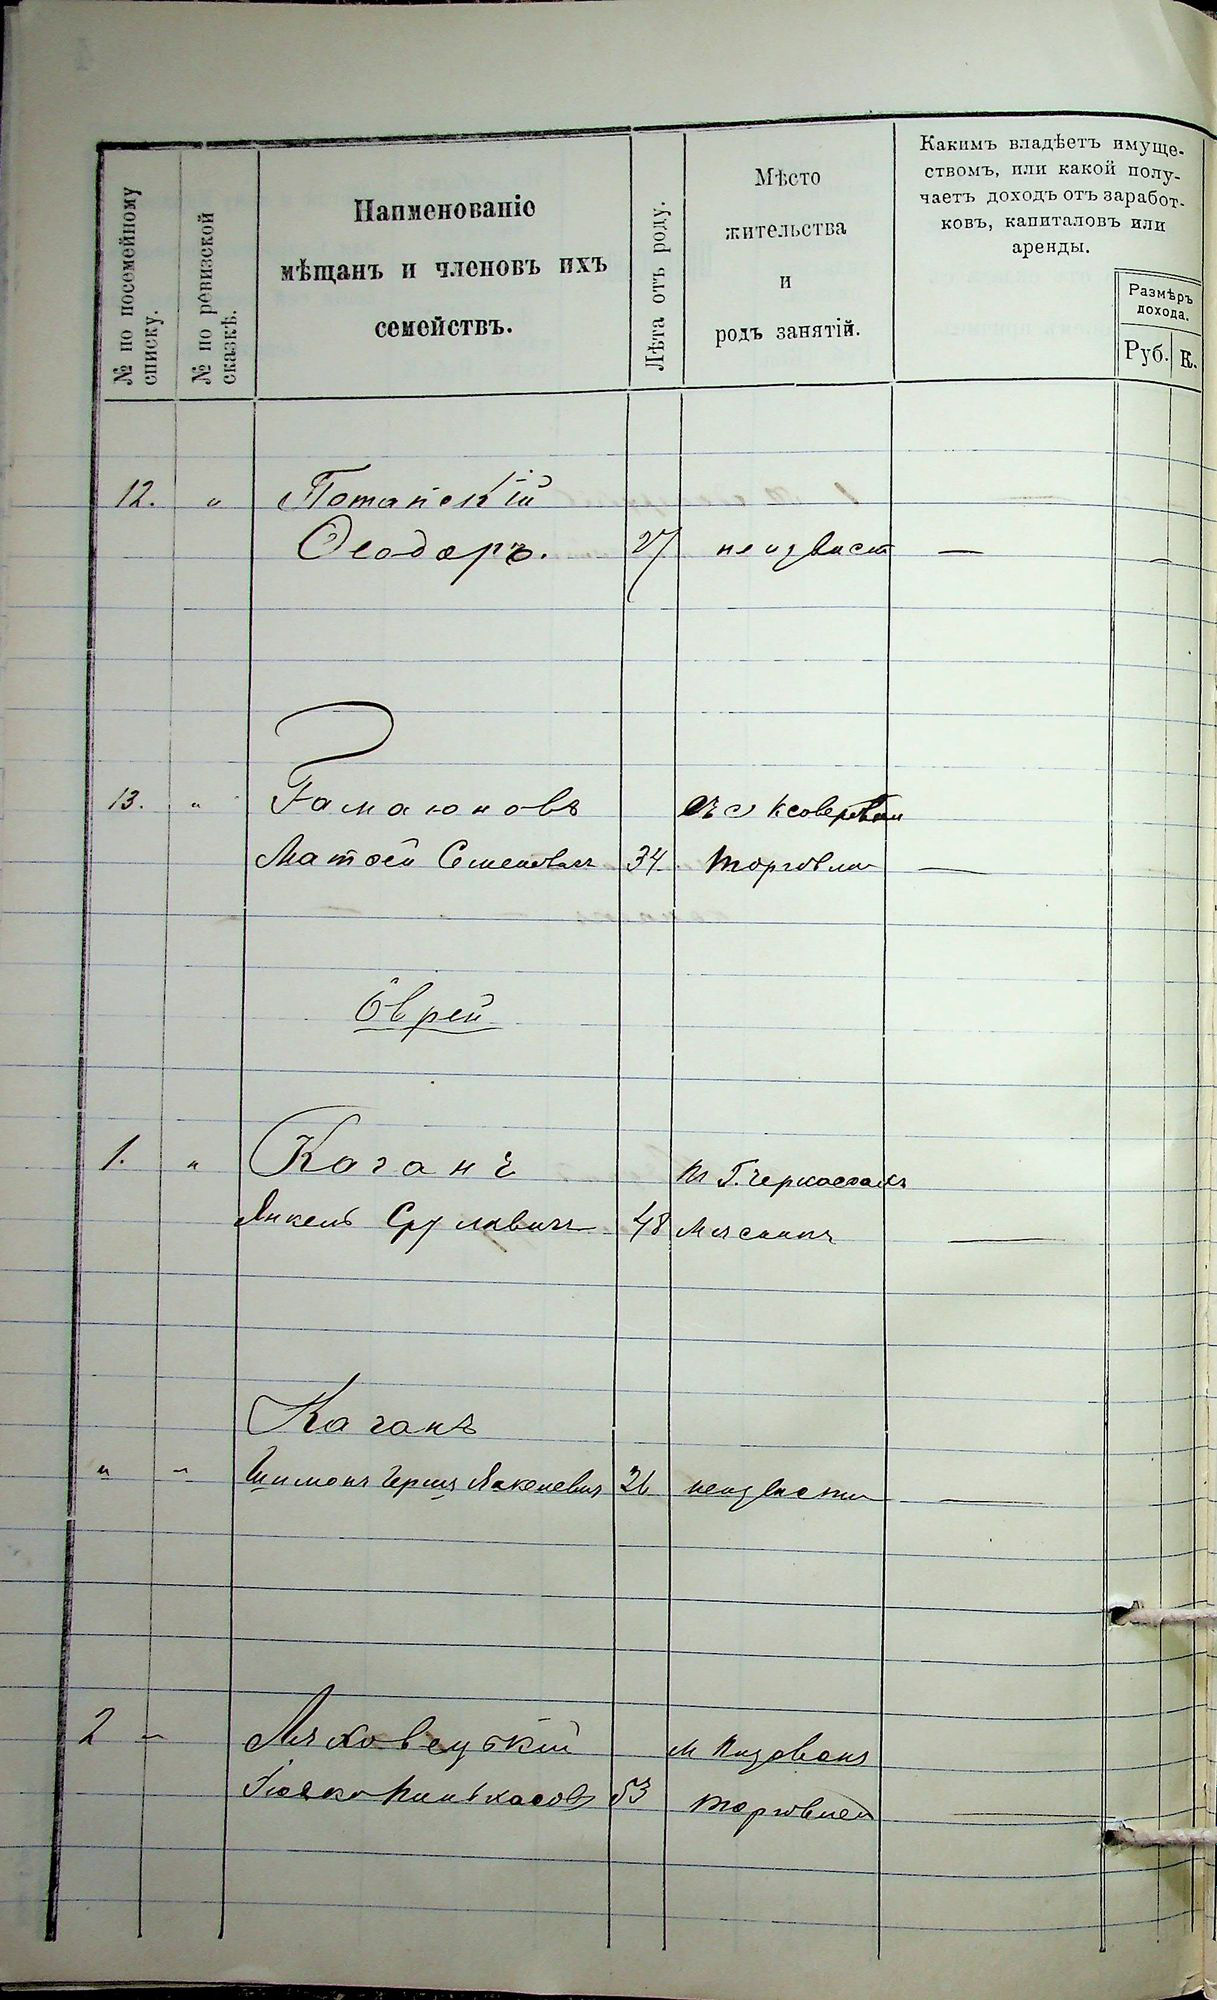 № по посемейному
списку.
№ по ревизской
сказкѣ.
Наименованіе
мѣщанъ и членовъ ихъ
семействъ.
Лѣта отъ роду.
Мѣсто
жительства
и
родъ занятій.
Какимъ владѣетъ имуще-
ствомъ, или какой полу-
чаетъ доходъ отъ заработ-
ковъ, капиталовъ или
аренды.
Размѣръ
дохода.
Руб. К.
12. " Потапскій
Ѳеодоръ. 27 неизвест —
13. " Гамаюновъ
Матвей Семеновъ 34 торговля —
Еврей
1. " Каганъ Г. Черкассахъ
Янкель Срулевичъ 48 Мясникъ —
Каганъ
" " Шимонъ Герш Янкелевич 26 неизвестн —
2 " Ляховецький
Иосько Пинькасов 53 торговлей —